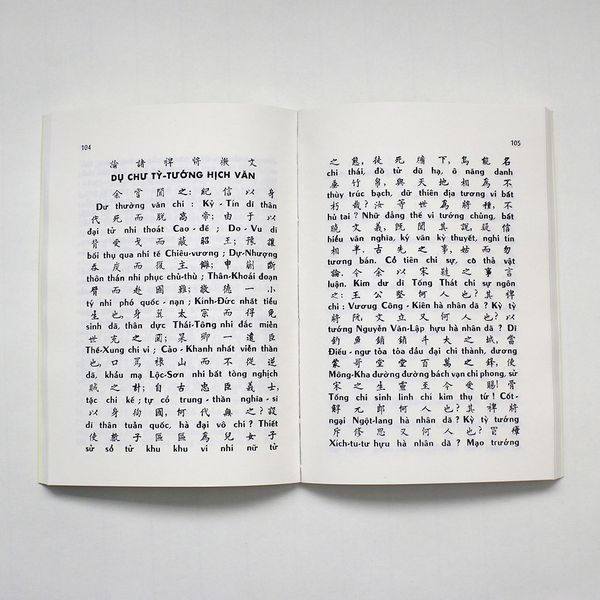 104
諭 諸 裨 將 檄 文
DỤ CHƯ TỲ-TƯỚNG HỊCH VĂN
余 嘗 聞 之: 紀 信 以 身
Dư thường văn chi : Kỷ - Tín dĩ thân
代 死 而 脫 高 帝; 由 于 以
đại tử nhi thoát Cao - đế ; Do - Vu dĩ
背 受 戈 而 蔽 昭 王; 豫 讓
bối thụ qua nhi tế Chiêu-vương ; Dự-Nhượng
吞 炭 而 復 主 讎; 申 蒯 斷
thôn thán nhi phục chủ-thù ; Thân-Khoái đoạn
臂 而 赴 國 難; 敬 德 一 小
tý nhi phó quốc - nạn ; Kính-Đức nhất tiểu
生 也, 身 翼 太 宗 而 得 免
sinh dã, thân dực Thái-Tông nhi đắc miễn
世 充 之 圍; 杲 卿 一 遠 臣
Thế-Xung chi vi ; Cảo - Khanh nhất viễn thần
也, 口 罵 祿 山 而 不 從 逆
dã, khẩu mạ Lộc-Sơn nhi bất tòng nghịch
賊 之 計; 自 古 忠 臣 義 士,
tặc chi kế ; tự cổ trung - thần nghĩa - sĩ
以 身 徇 國, 何 代 無 之? 設
dĩ thân tuẫn quốc, hà đại vô chi ? Thiết
使 數 子 區 區 為 兒 女 子
sử số tử khu khu vi nhi nữ tử
105
之 態, 徒 死 牖 下, 烏 能 名
chi thái, đồ tử dũ hạ, ô năng danh
垂 竹 帛, 與 天 地 相 為 不
thùy trúc bạch, dữ thiên địa tương vi bất
朽 哉? 汝 等 世 為 將 種, 不
hủ tai ? Nhữ đẳng thế vi tướng chủng, bất
曉 文 義, 既 聞 其 說, 疑 信
hiểu văn nghĩa, ký văn kỳ thuyết, nghi tín
相 半. 古 先 之 事, 姑 而 勿
tương bán. Cổ tiên chi sự, cô thả vật
論. 今 余 以 宋 韃 之 事 言
luận. Kim dư dĩ Tống Thát chi sự ngôn
之: 王 公 堅 何 人 也? 其 裨
chi : Vương Công - Kiên hà nhân dã ? Kỳ tỳ
將 阮 文 立 又 何 人 也? 以
tướng Nguyễn Văn-Lập hựu hà nhân dã ? Dĩ
釣 魚 鎖 鎖 斗 大 之 城, 當
Điếu- ngư tỏa tỏa đẩu đại chi thành, đương
蒙 哥 堂 堂 百 萬 之 鋒, 使
Mông-Kha đường đường bách vạn chi phong, sử
宋 之 生 靈 至 今 受 賜! 骨
Tống chi sinh linh chí kim thụ tứ ! Cốt-
觧 兀 郎 何 人 也? 其 裨 將
ngại Ngột-lang hà nhân dã ? Kỳ tỳ tướng
斥 修 思 又 何 人 也? 冒 瘴
Xích-tu-tư hựu hà nhân dã ? Mạo trướng